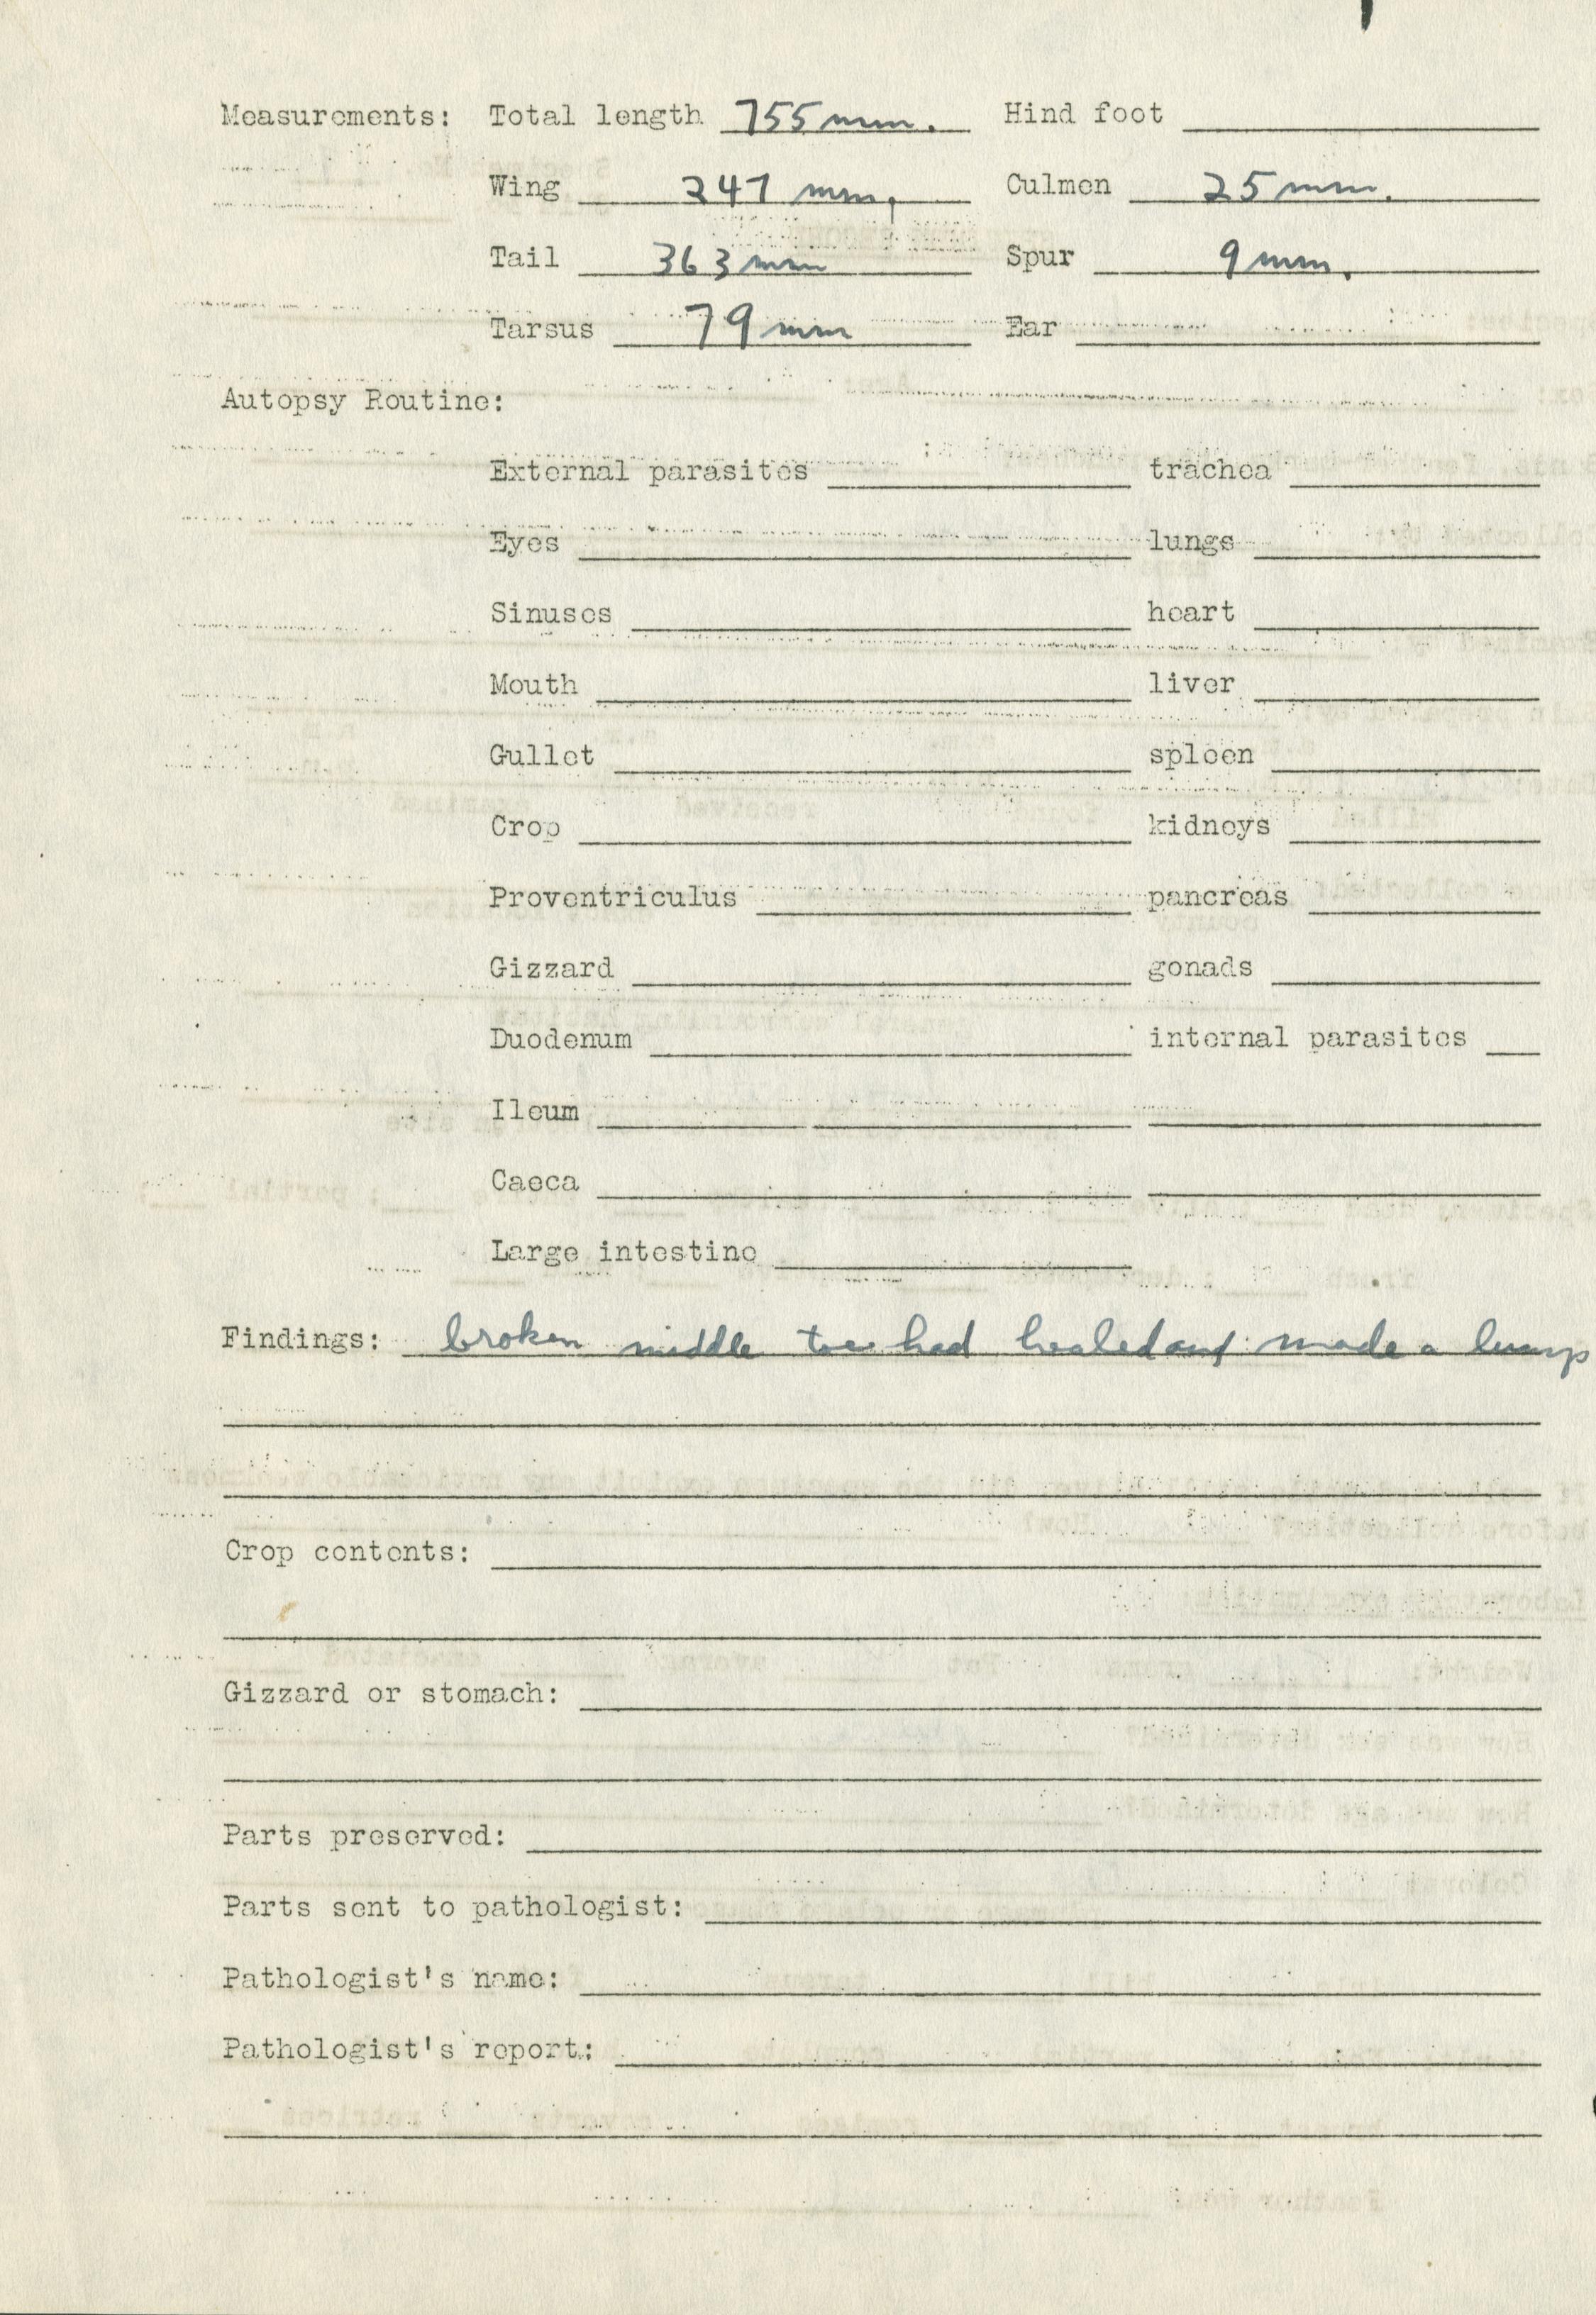 Measurements: Total length 755 mm. Hind foot
Wing 247 mm. Culmen 25 mm.
Tail 363 mm Spur 9 mm.
Tarsus 79 mm Ear
Autopsy Routine:
External parasites trachea
Eyes lungs
Sinuses heart
Mouth liver
Gullet spleen
Crop kidneys
Proventriculus pancreas
Gizzard gonads
Duodenum internal parasites
Ileum
Caeca
Large intestine
Findings: broken middle toe had healed and made a lump
Crop contents:
Gizzard or stomach:
Parts preserved:
Parts sent to pathologist:
Pathologist's name:
Pathologist's report: